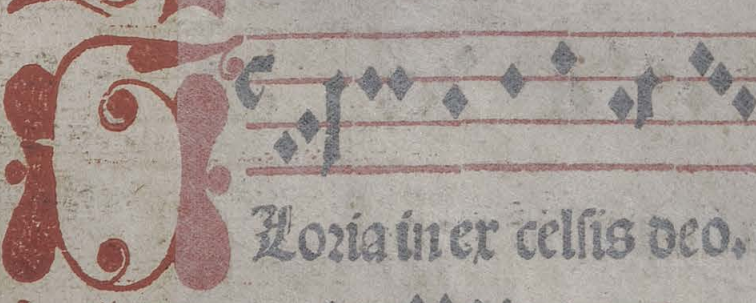 Loria in ex celsis deo.